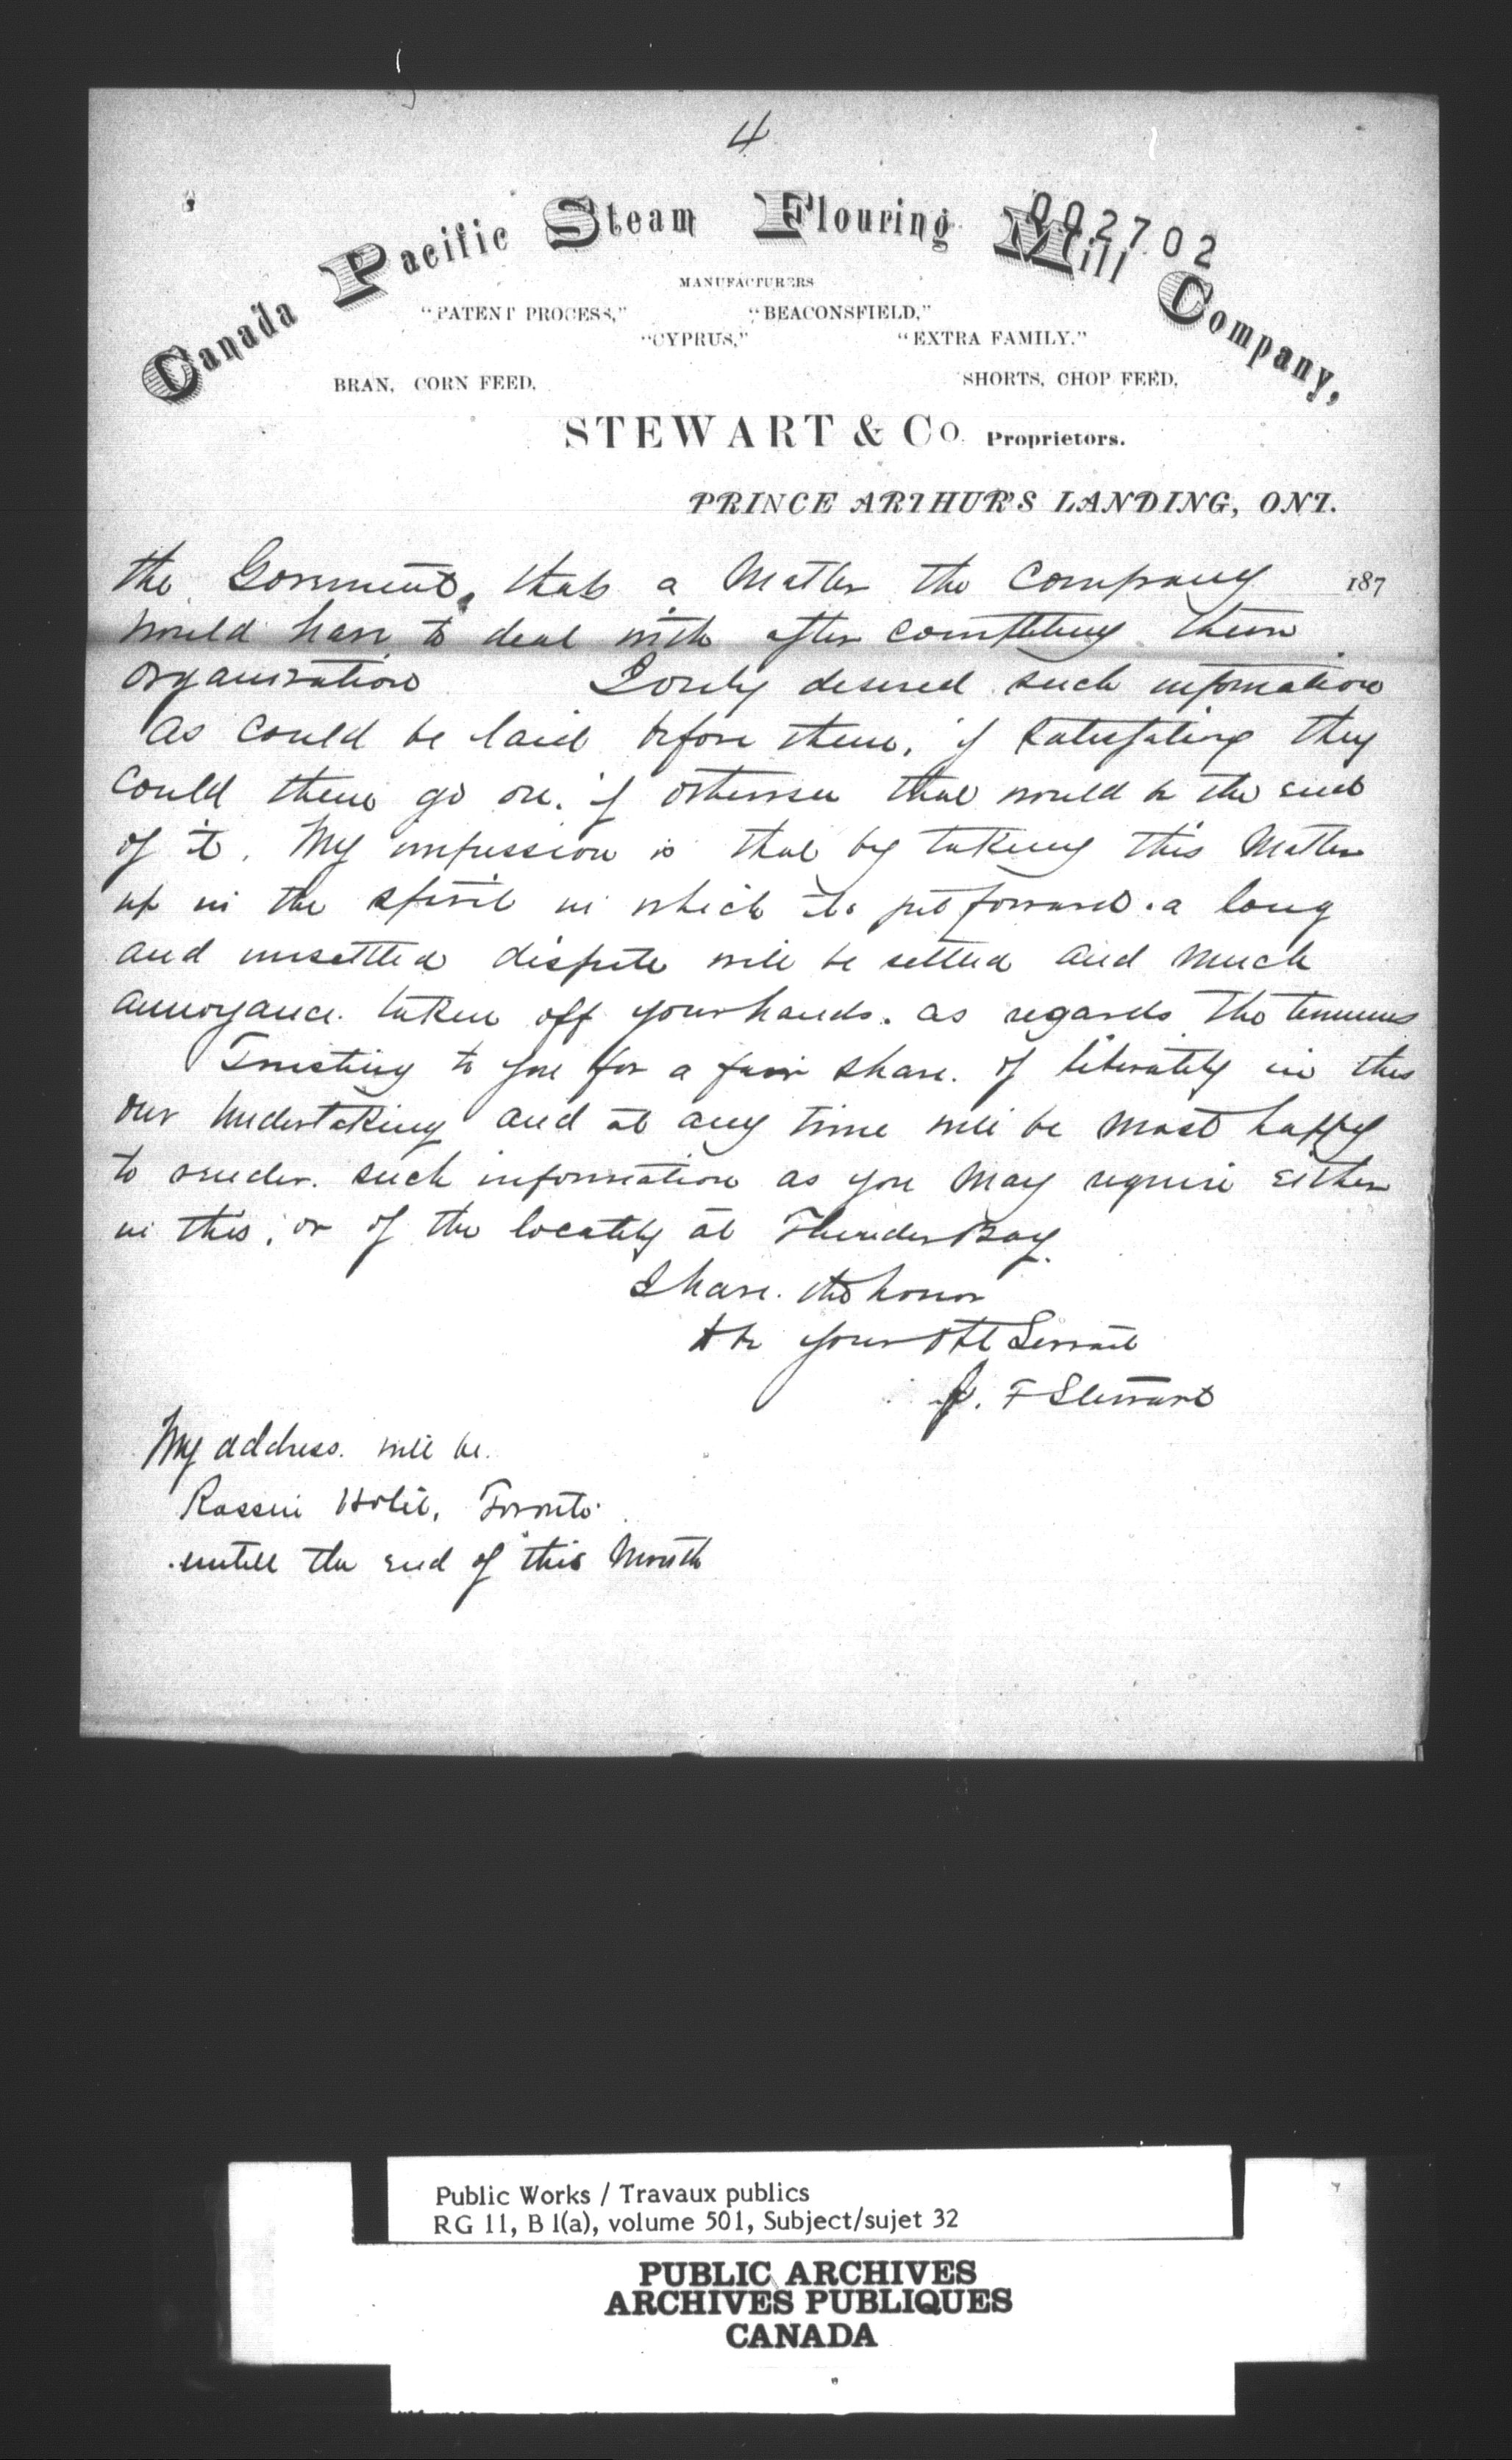 4
002702
Canada Pacific Steam Flouring Mill Company,
MANUFACTURERS
"PATENT PROCESS," "BEACONSFIELD,"
"CYPRUS," "EXTRA FAMILY."
BRAN, CORN FEED, SHORTS, CHOP FEED,
STEWART & Co. Proprietors.
PRINCE ARTHUR'S LANDING, ONT.
the Goverment, thats a Matter the Company 187
would have to deal with after completing their
organization I only desired such information
as could be laid before them, if they
could then go on. if otherwise that would be the end
of it. My impression is that by taking this Matter
up in the spirit in which its put forward. a long
and unsettled dispute will be settled and much
annoyance. taken off your hands. as regards the terminus
Trusting to you for a fair share. of liberality in this
our undertaking and at any time will be most happy
to render. such information as you may require either
in this, or of the locality at Thunder Bay.
I have. the honor
to be your Obt Servant
J. F Stewart
My address. will be.
Rossin Hotel, Toronto.
untill the end of this Month
Public Works / Travaux publics
RG 11, B 1(a), volume 501, Subject/sujet 32
PUBLIC ARCHIVES
ARCHIVES PUBLIQUES
CANADA